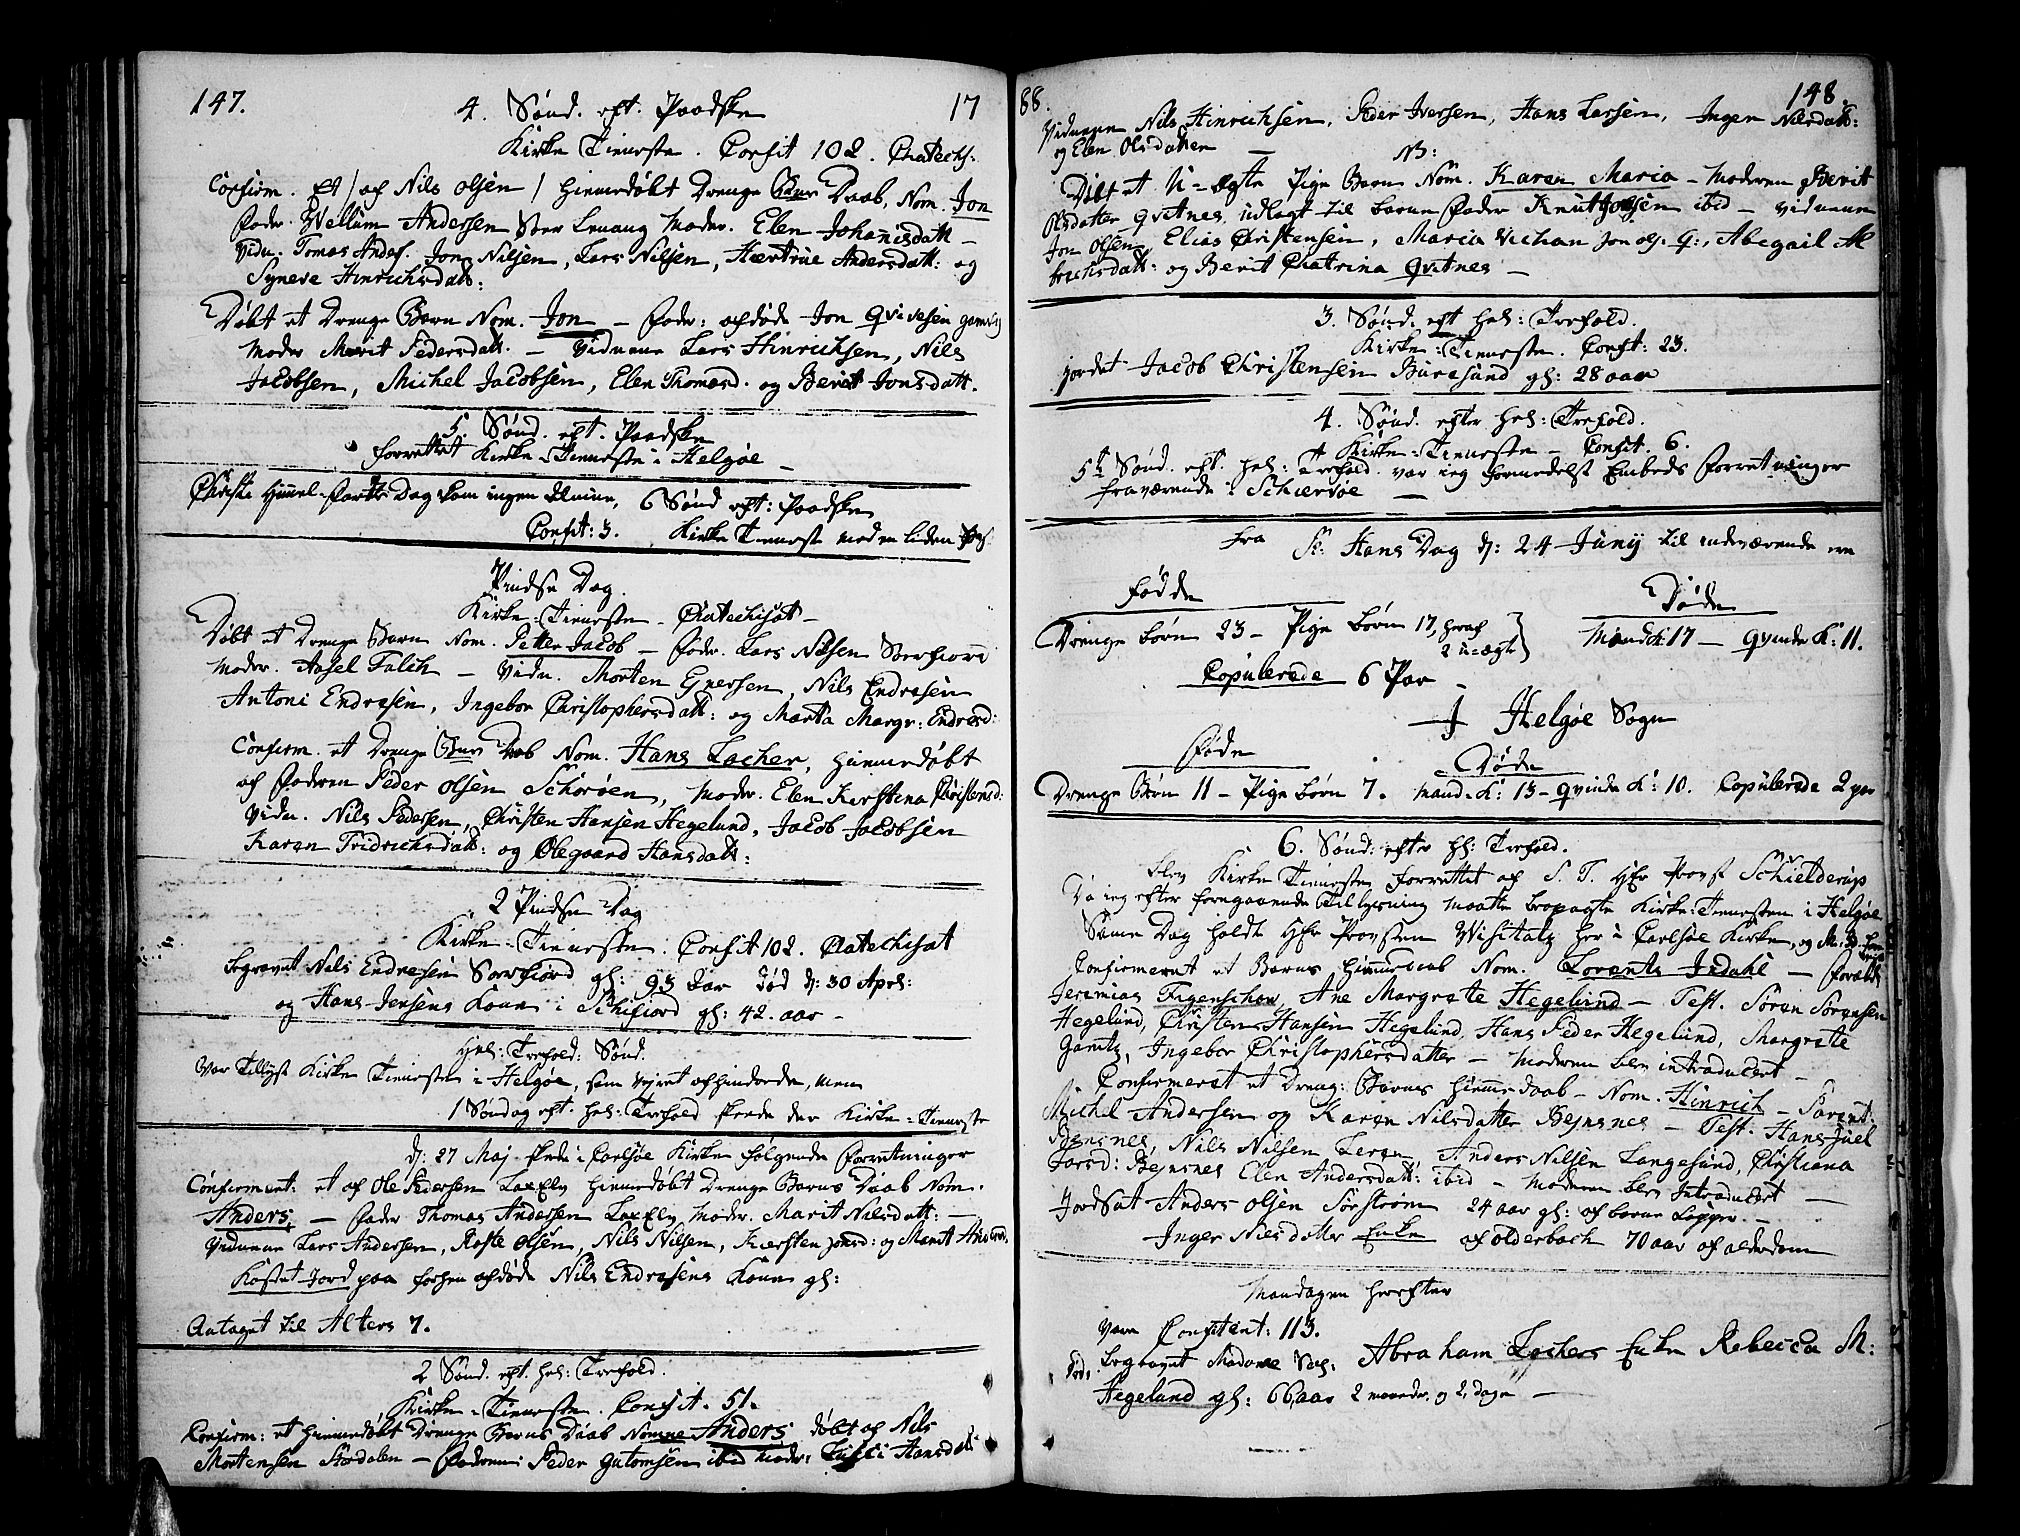 147.
4. Sønd. eft. Paaske
17
Kirke Tieneste. Confit 102. Chatechs:
Confirm. et / af Nils Olsen / hiemedøbt Drenge Barns Daab, Nom. Jon
Fader. Wellum Andersen Moder. Elen Johanisdatt –
Vidn. Tomas Anders. Jon Nilsen, Lars Nilsen, Hærtrue Andersdatt: og
Syneve Hinrichsdatt:
Døbt et Drenge Barn Nom. Jon – Fader: afdøde Jon Qvivesen
Moder Marit Pedersdatt. – Vidnerne Lars Hinrichsen, Nils
Jacobsen, Michel Jacobsen, Elen Thomasd. og Berit Jonsdatt.
5 Sønd. eft. Paaske
forrettet Kirke-Tieneste i Helgøe –
Christi Himmel-Farts Dag kom ingen Almue, 6 Sønd eft: Paaske
Confit: 3. Kirke Tieneste med en liden
Pindse Dag.
Kirke-Tienesten – Chatechisat –
Døbt et Drenge Barn Nom. Petter Jacob – Fader. Lars Nilsen Sørfiord
Moder. Aasel Falch – Vidn. Morten Iversen, Nils Endresen
Antoni Endresen, Ingebor Christophersdatt: og Marta Margr: Endresd:
Confirm. et Drenge Barns Daab Nom. Hans Locher, hiemedøbt
af Faderen Peder Olsen Schorøen, Moder. Elen Kirstina Christensd:
Vidn. Nils Pedersen, Christen Hansen Hegelund, Jacob Jacobsen
Karen Fridrichsdatt: og Olegaard Hansdatt:
2 Pindse Dag
Kirke-Tienesten. Confit 102. Chatechisat
begravet Nils Endresen Sørfiord gl: 93 Aar død d: 30 Apr:
og Hans Jensens Kone i gl: 42. aar –
Hel: Trefold: Sønd.
Var Tillyst Kirke Tieneste i Helgøe, som Vejret afhindrede, men
1 Søndag eft: hel: Trefold skede der Kirke-Tieneste
d: 27 Maj skede i Carlsøe Kirke følgende Forretninger
Confirmert: et af Ole Pedersen LaxElv hiemedøbt Drenge Barns Daab Nom.
Anders, – Fader Thomas Andersen LaxElv Moder. Marit Nilsdatt: –
Vidnerne Lars Andersen, Roste Olsen, Nils Nilsen, Kiersten Jonsd: og Marit Andersd:
Kastet Jord paa forhen afdøde Nils Endresens Kone gl:
Antaget til Alters 7.
2 Sønd. eft. hel: Trefold.
Kirke-Tieneste. Confit. 51.
Confirm: et hiemedøbt Drenge Barns Daab Nomine Anders døbt af Nils
Mortensen Stordalen – Faderen: Peder Gutomsen ibid Moder: Hansdatt
88.
148.
Vidnerne Nils Hinrichsen, Peder Iversen, Hans Larsen, Inger Nilsdatt:
og Elen Olsdatter –
NB:
Døbt et U-ægte Pige Barn Nom. Karen Maria – Moderen Berit
Olsdatter Qvitnes, udlagt til barne Fader Knut ibid – Vidnerne
Jon Olsen, Elias Christensen, Maria Jon Ols: G:, Abegail Al
brechsdatt: og Berit Chatrina Qvitnes –
3. Sønd. eft hel: Trefold.
Kirke-Tieneste. Confit: 23.
jordet Jacob Christensen Buresund gl: 28 aar
4. Sønd. efter hel: Trefold.
Kirke-Tieneste – Confit. 6.
5te Sønd. eft. hel: Trefold. var ieg formedelst Embeds Forretninger
fraværende i Schiervøe –
Fra St: Hans Dag d: 24 Junij til indeværende ere
Fødde
Døde
Drenge børn 23 – Pige børn 17, hvoraf
2 u-ægte
Mandk: 17 – Qvinde K: 11.
Copulerede 6 Par –
I Helgøe Sogn
Føde
Døde
Drenge Børn 11 – Pige børn 7. Mand-K: 13 – Qvinde K: 10. Copulerede 2 par
6. Sønd: efter hl: Trefold.
blev Kirke Tienesten forrettet af S. T. Hr Provst Schielderup
Da ieg efter foregaaende Tillysning maatte besøgte Kirke-Tienesten i Helgøe
Same Dag holdt Hr Provsten Visitatz her i Carlsøe Kirke, og
Confirmeret et Barns hiemedaab Nom. Lorents Indahl – Forældr
Jeremias Figenschou, Ane Margrete Hegelund – Test. Søren Sørensen
Hegelund, Christen Hansen Hegelund, Hans Peder Hegelund, Margrete
Gamtz, Ingebor Christophersdatter – Moderen blev introducert –
Confirmeret et Dreng: Barns hiemedaab – Nom. Hinrich – Parent:
Michel Andersen og Karen Nilsdatter Bejnsnes – Test. Hans Juel
Bensnes, Nils Nilsen Leren, Anders Nilsen Langesund, Christiana
Larsd: Bejnsnes Elen Andersdatt: ibid – Moderen blev Introducert –
Jordsat Anders Olsen Sørstrøm 24 aar gl: af
Inger Nielsdatter Enke af Olderbach 70 aar af alderdom
Mandagen hereftter
Vare Confitent: 113.
begravet Madame Sal: Abraham Lochers Enke Rebecca M:
Hegelund gl: 66 aar 2 maaneder og 2 dage –